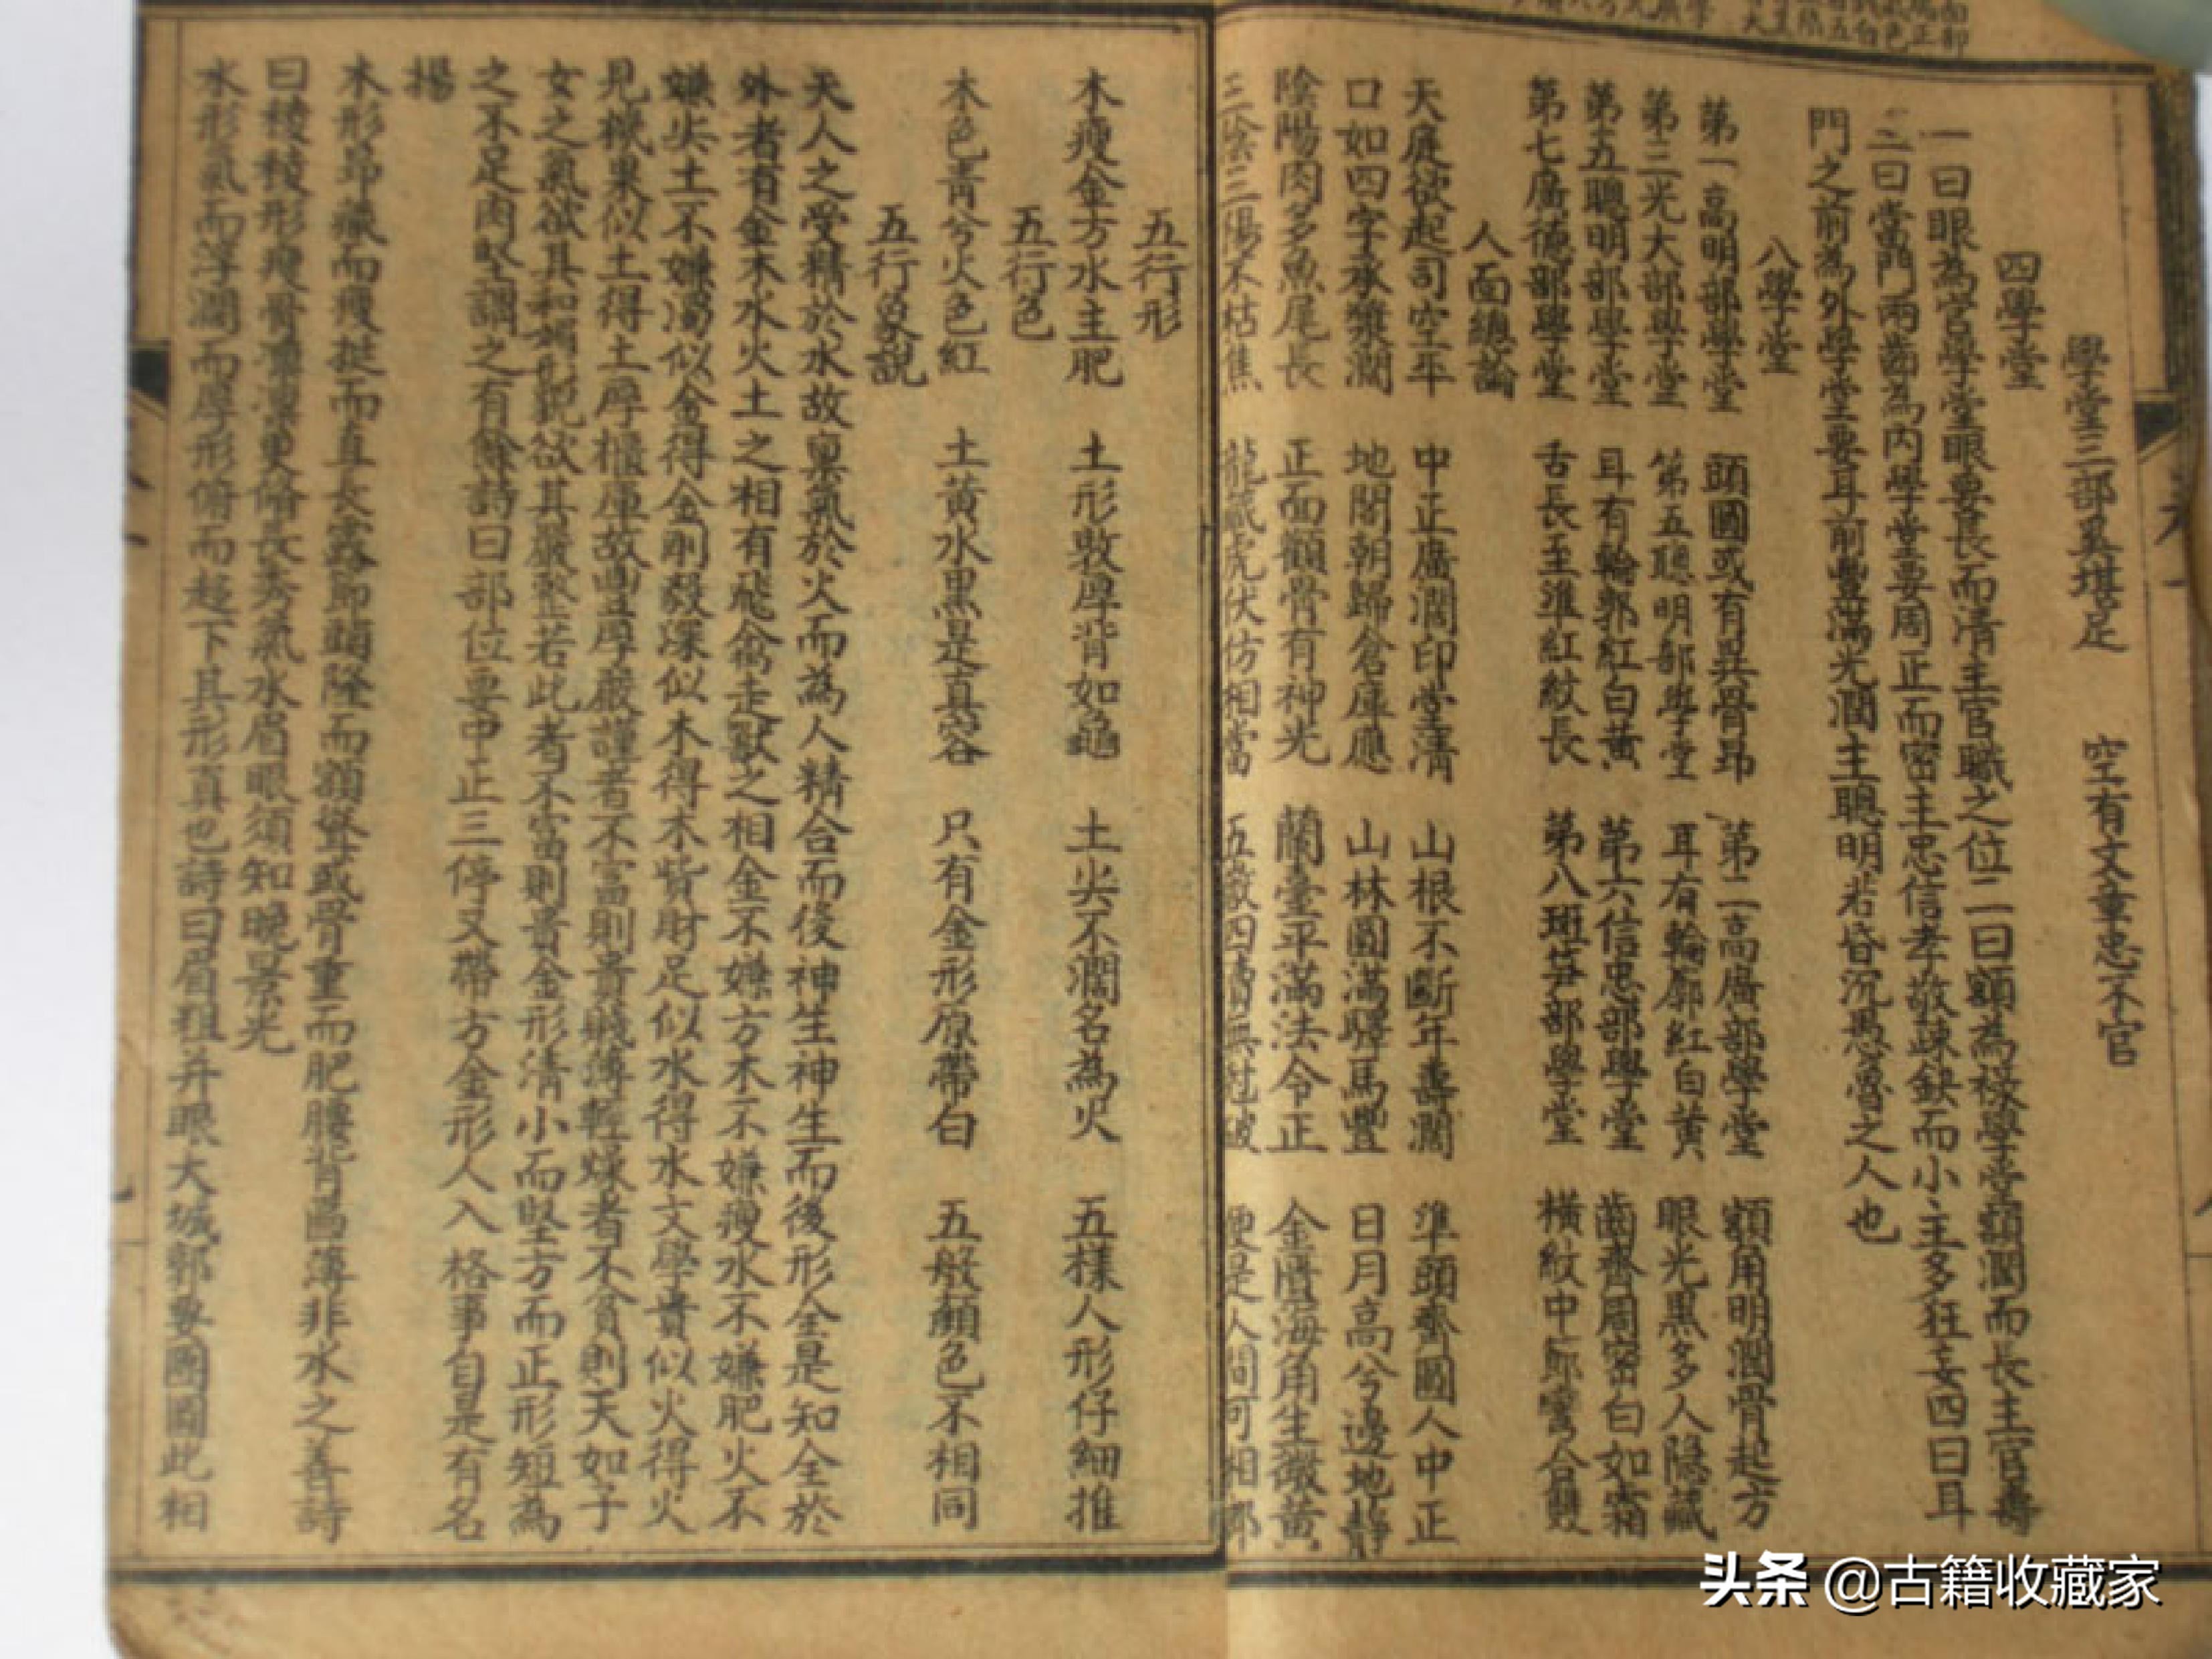 學堂三部奚堪足 空有文章忠不官
四學堂
一曰眼為官學堂眼要長而清主官職之位二曰額為祿學堂額濶而長主官壽
三曰當門兩齒為內學堂要周正而密主忠信孝敬疎缺而小主多狂妄四曰耳
門之前為外學堂要耳前豐滿光潤主聰明若昏沉愚魯之人也
八學堂
第一高明部學堂 頭圓或有異骨昂 第二高廣部學堂 額角明潤骨起方
第三光大部學堂 第五聰明部學堂 耳有輪廓紅白黃 眼光黑多人隱藏
第五聰明部學堂 耳有輪郭紅白黃 第六信忠部學堂 齒齊周密白如霜
第七廣德部學堂 舌長至準紅紋長 第八班笋部學堂 橫紋中節彎合雙
人面總論
天庭欲起司空平 中正廣濶印堂清 山根不斷年壽濶 準頭齊圓人中正
口如四字承漿濶 地閣朝歸倉庫應 山林圓滿驛馬豐 日月高兮邊地靜
陰陽肉多魚尾長 正面顴骨有神光 蘭臺平滿法令正 金匱海角生微黃
三陰三陽不枯焦 龍藏虎伏仿相當 五嶽四瀆無尅破 便是人間可相郎
五行形
木瘦金方水主肥 土形敦厚背如龜 土尖不濶名為火 五樣人形仔細推
五行色
木色青兮火色紅 土黃水黑是真容 只有金形原帶白 五般顏色不相同
五行象說
夫人之受精於水故稟氣於火而為人精合而後神生神生而後形全是知全於
外者有金木水火土之相有飛禽走獸之相金不嫌方木不嫌瘦水不嫌肥火不
嫌尖土不嫌濁似金得金剛毅深似木得木貲財足似水得水文學貴似火得火
見機果似土得土厚櫃庫故豐厚嚴謹者不富則貴賤薄輕燥者不貧則天如子
女之氣欲其和媚形貌欲其嚴整若此者不富則貴金形清小而堅方而正形短為
之不足肉堅謂之有餘詩曰部位要中正三停又帶方金形人入格事自是有名
揚
木形昂藏而瘦挺而直長露節頭隆而額聳或骨重而肥腰背匾薄非水之善詩
曰稜稜形瘦骨凜凜更脩長秀氣水眉眼須知晚景光
水形氣而浮濶而厚形俯而趨下其形真也詩曰眉粗并眼大城郭要團圓此相
头条 @古籍收藏家